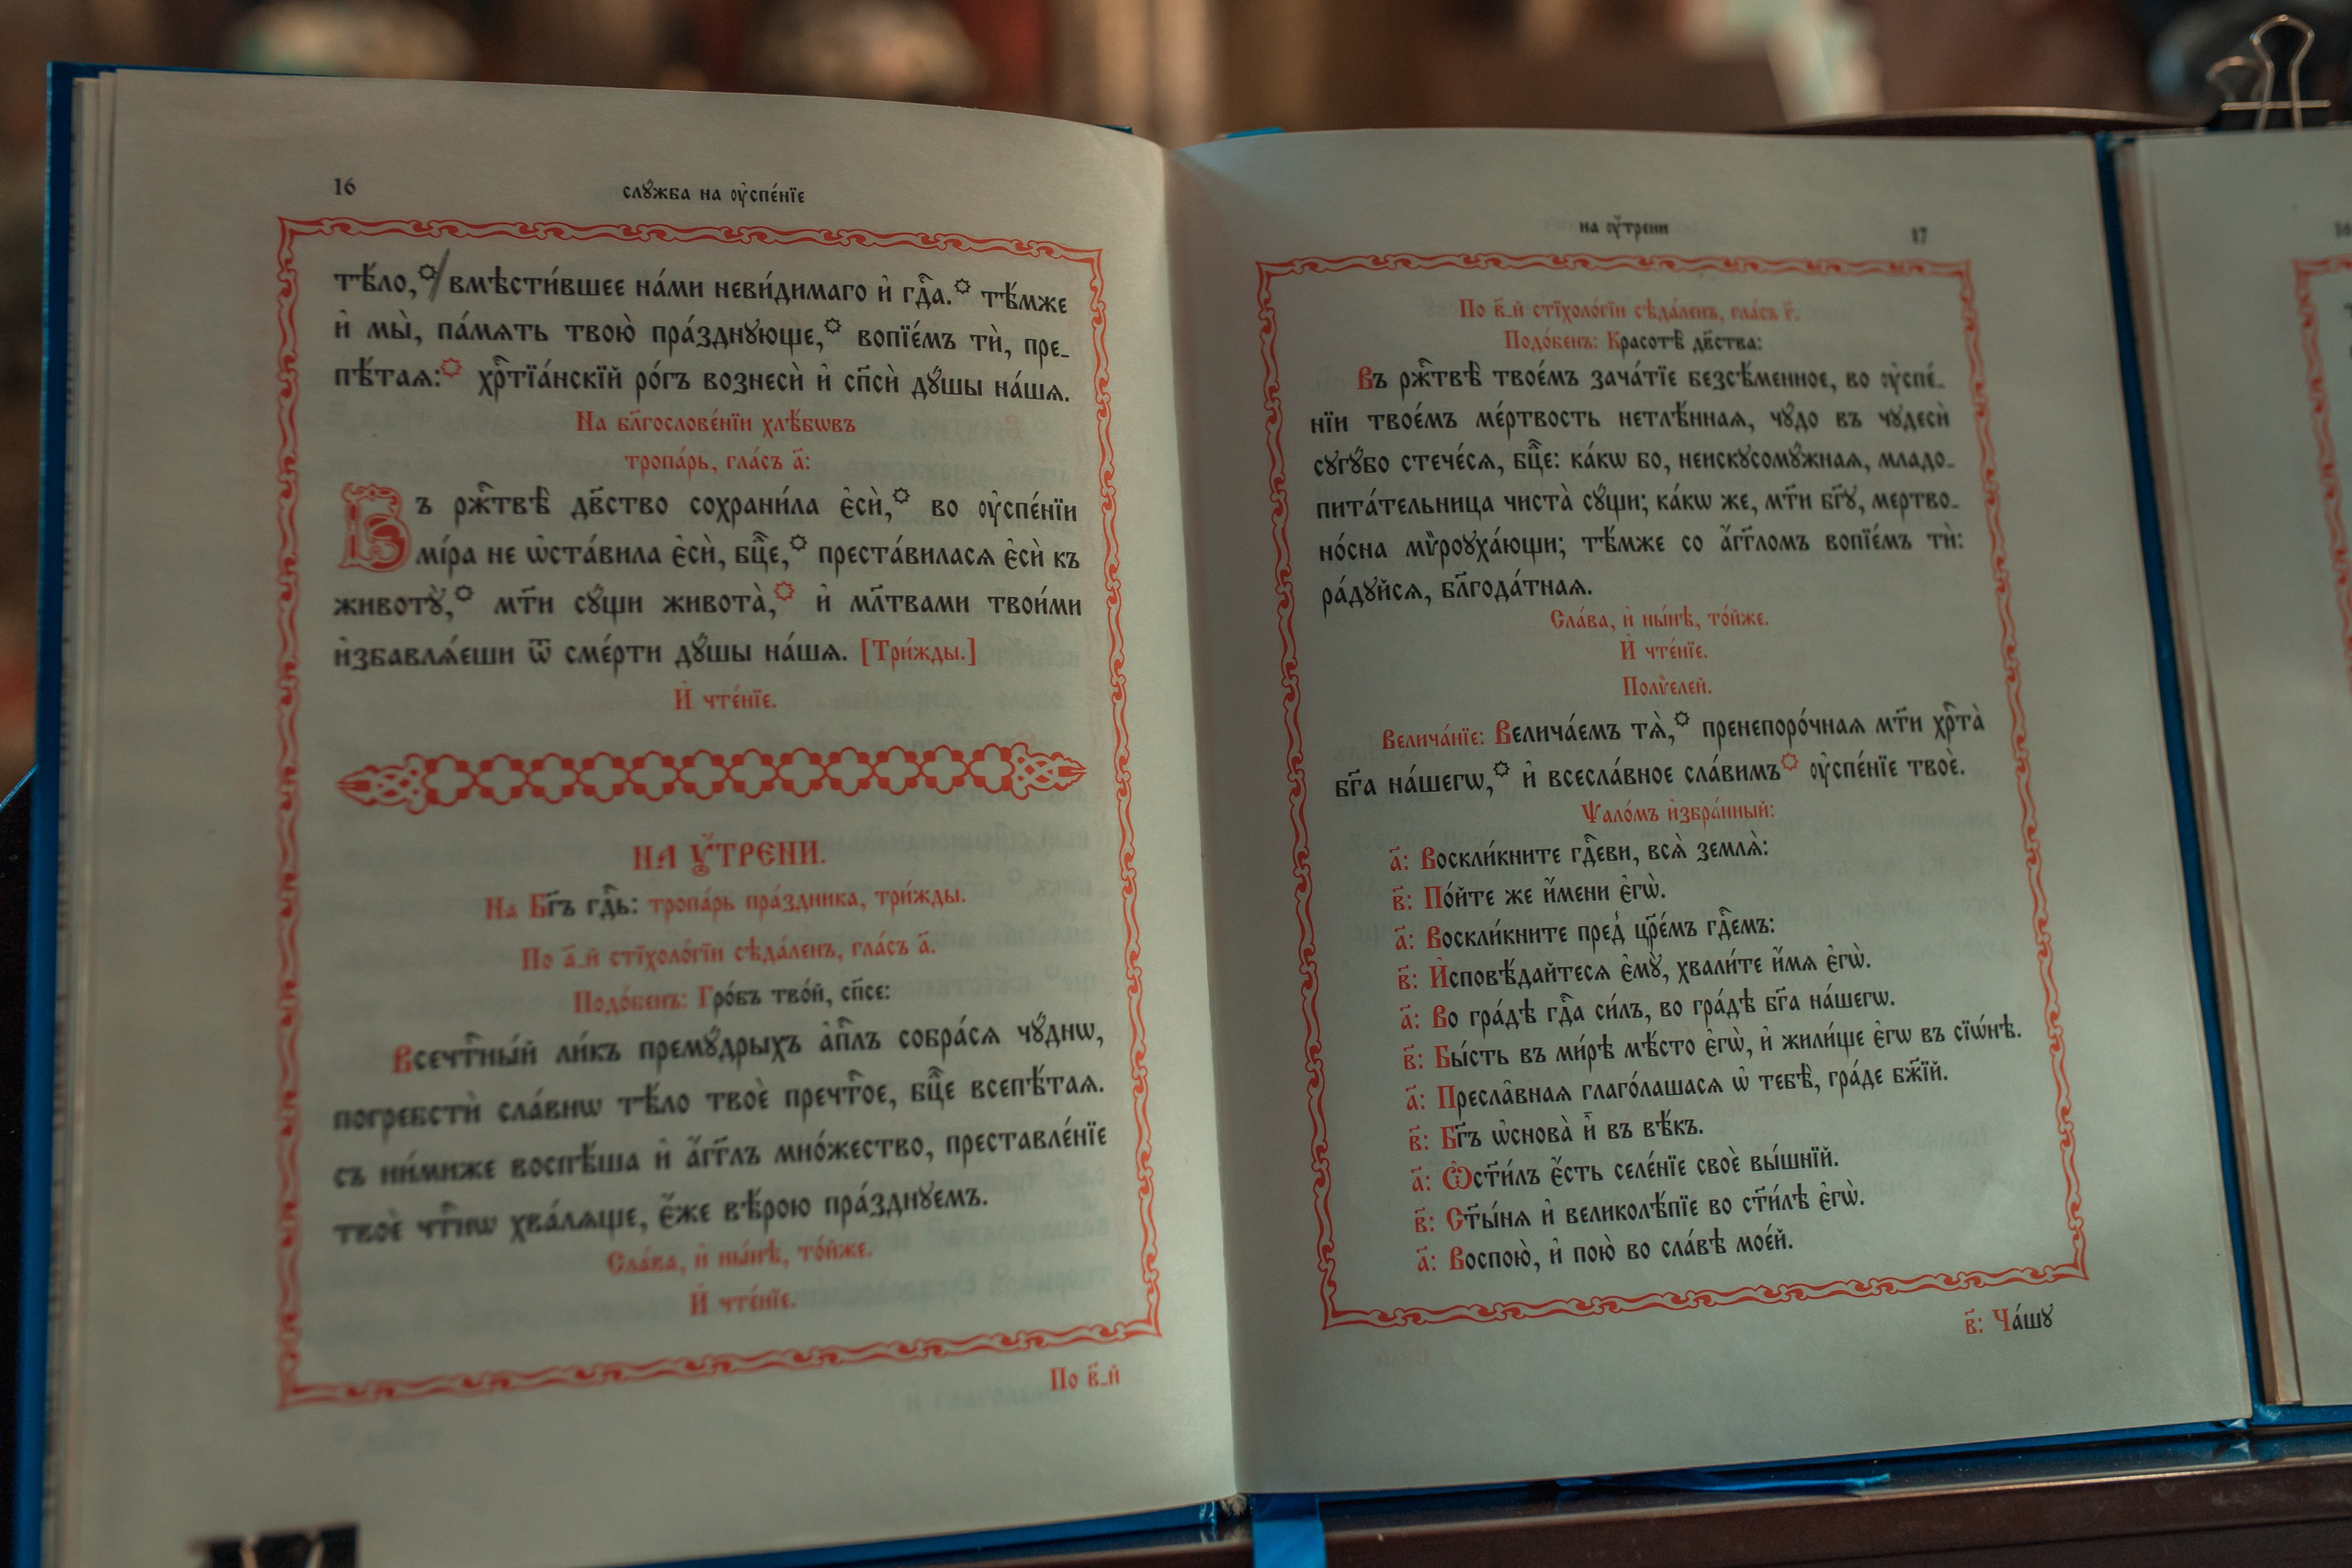 16
слꙋ́жба на ᲂу҆спе́нїе
тѣ́ло,꙳ вмѣсти́вшее на́ми неви́димаго и҆ гдⷭ҇а.꙳ тѣ́мже
и҆ мы̀, па́мѧть твою̀ пра́зднꙋюще,꙳ вопїе́мъ тѝ, пре-
пѣ́таѧ:꙳ хрⷭ҇тїа́нскїй ро́гъ вознесѝ и҆ сп҃сѝ дꙋ́шы на́шѧ.
На бл҃гослове́нїи хлѣ́бѡвъ
тропа́рь, гла́съ а҃:
Въ ржⷭ҇твѣ̀ дв҃ство сохрани́ла є҆сѝ,꙳ во ᲂу҆спе́нїи
мі́ра не ѡ҆ста́вила є҆сѝ, бцⷣе,꙳ преста́виласѧ є҆сѝ къ
животꙋ̀,꙳ мт҃и сꙋ́щи живота̀,꙳ и҆ мл҃твами твои́ми
и҆збавлѧ́еши ѿ сме́рти дꙋ́шы на́шѧ. [Три́жды.]
И҆ чте́нїе.
НА Ꙋ҆́ТРЕНИ.
На Бг҃ъ гдⷭ҇ь: тропа́рь пра́здника, три́жды.
По а҃-й стїхоло́гїи сѣда́ленъ, гла́съ а҃.
Подо́бенъ: Гро́бъ тво́й, сп҃се:
Всечтⷭ҇ны́й ли́къ премꙋ́дрыхъ а҆пⷭ҇лъ собра́сѧ чꙋ́днѡ,
погребстѝ сла́внѡ тѣ́ло твоѐ пречтⷭ҇ое, бцⷣе всепѣ́таѧ.
съ ни́миже воспѣ́ша и҆ а҆́гг҃лъ мно́жество, преставле́нїе
твоѐ чтⷭ҇нѡ хва́лѧще, є҆́же вѣ́рою пра́зднꙋемъ.
Сла́ва, и҆ ны́нѣ, то́йже.
И҆ чте́нїе.
По в҃-й
на ᲂу҆́трени
17
По в҃-й стїхоло́гїи сѣда́ленъ, гла́съ г҃.
Подо́бенъ: Красотѣ̀ дв҃ства:
Въ ржⷭ҇твѣ̀ твое́мъ зача́тїе безсѣ́менное, во ᲂу҆спе́-
нїи твое́мъ ме́ртвость нетлѣ́ннаѧ, чꙋ́до въ чꙋдесѝ
сꙋгꙋ́бо стече́сѧ, бцⷣе: ка́кѡ бо, неискꙋсомꙋ́жнаѧ, младо-
пита́тельница чиста̀ сꙋ́щи; ка́кѡ же, мт҃и бг҃ꙋ, мертво-
но́сна мѷроꙋха́ющи; тѣ́мже со а҆́гг҃ломъ вопїе́мъ тѝ:
ра́дꙋйсѧ, бл҃года́тнаѧ.
Сла́ва, и҆ ны́нѣ, то́йже.
И҆ чте́нїе.
Полѷеле́й.
Велича́нїе: Велича́емъ тѧ̀,꙳ пренепоро́чнаѧ мт҃и хрⷭ҇та̀
бг҃а на́шегѡ,꙳ и҆ всесла́вное сла́вимъ꙳ ᲂу҆спе́нїе твоѐ.
Ѱало́мъ и҆збра́нный:
а҃: Воскли́кните гдⷭ҇еви, всѧ̀ землѧ̀:
в҃: По́йте же и҆́мени є҆гѡ̀.
а҃: Воскли́кните пред̾ цр҃е́мъ гдⷭ҇емъ:
в҃: И҆сповѣ́дайтесѧ є҆мꙋ̀, хвали́те и҆́мѧ є҆гѡ̀.
а҃: Во гра́дѣ гдⷭ҇а си́лъ, во гра́дѣ бг҃а на́шегѡ.
в҃: Бы́сть въ ми́рѣ мѣ́сто є҆гѡ̀, и҆ жили́ще є҆гѡ̀ въ сїѡ́нѣ.
а҃: Пресла̑внаѧ глаго́лашасѧ ѡ҆ тебѣ̀, гра́де бж҃їй.
в҃: Бг҃ъ ѡ҆снова̀ и҆̀ въ вѣ́къ.
а҃: Ѡ҆ст҃и́лъ є҆́сть селе́нїе своѐ вы́шнїй.
в҃: Ст҃ы́нѧ и҆ великолѣ́пїе во ст҃и́лѣ є҆гѡ̀.
а҃: Воспою̀, и҆ пою̀ во сла́вѣ мое́й.
в҃: Ча́шꙋ